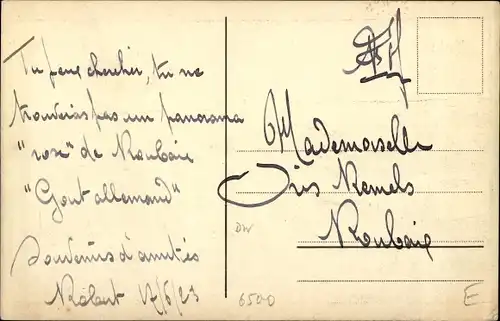 Tu peux chercher, tu ne
trouverais pas un panorama
"rose" de Roubaix
"Gout allemand"
Souvenirs d'amitiés
Robert 17/6/23
Mademoiselle
Iris Remels
Roubaix
DW
6500
E